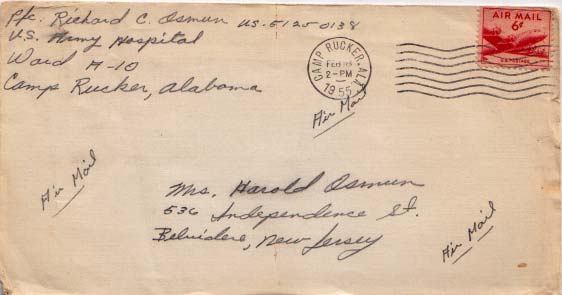 Pfc. Richard C. Osmun US-51250138
U.S. Army Hospital
Ward A-10
Camp Rucker, Alabama
CAMP RUCKER. ALA.
FEB 18
2-PM
1955
AIR MAIL
6¢
U.S. POSTAGE
Air Mail
Air Mail
Mrs. Harold Osmun
536 Independence St.
Belvidere, New Jersey
Air Mail